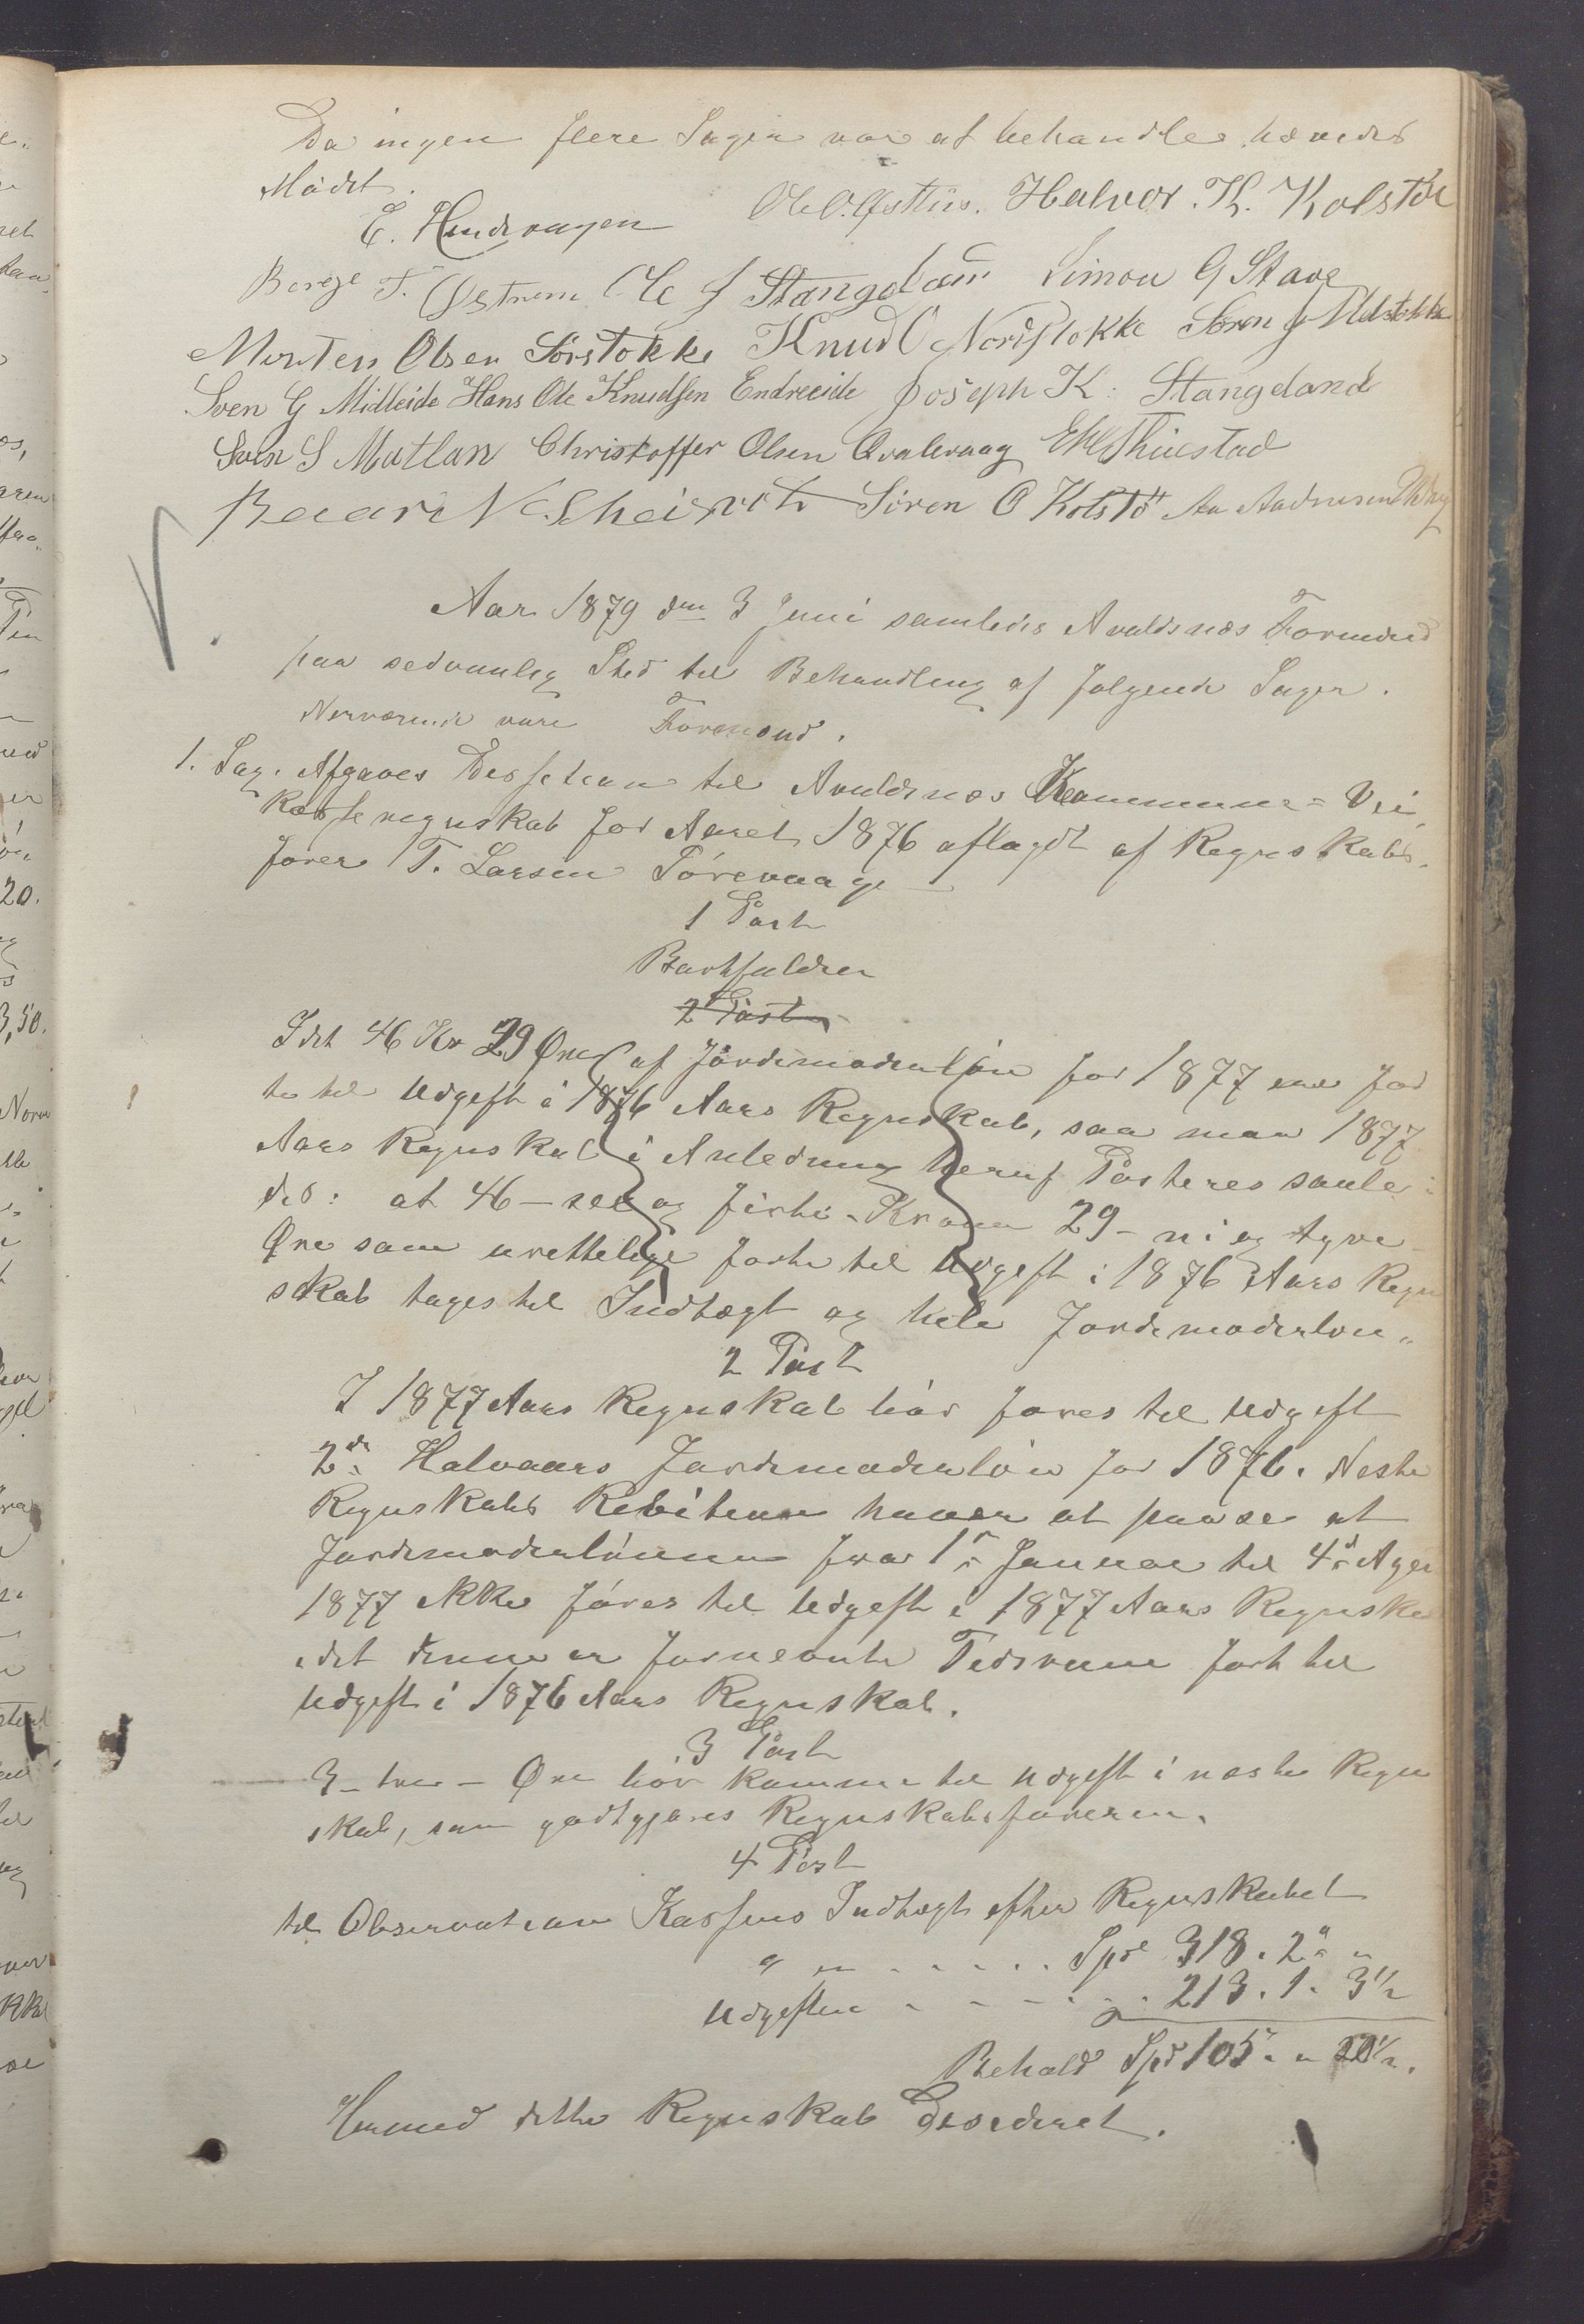 Da ingen flere Sager var at behandle hævedes
Mødet.
E. Hindvaagen Ole O. Østhus. Halvor. K. Kolstø
Børge T. Østrem Ole J Stangeland Simon G Stave
Morten Olsen Sørstokke Knud O Nordstokke Søren J Midstokke
Sven G Midleide Hans Ole Knudsen Endreeide Joseph K: Stangeland
Sven S Matlan Christoffer Olsen Qvalevaag E M Thuestad
Baar N. Scheie Søren O Kolstö Aa Aadnesen
Aar 1879 den 3 Juni samledes Avaldsnes Formend
paa sedvanlig Sted til Behandling af følgende Sager.
Nerværende vare Formænd.
1. Sag. Afgaves Desisitian til Avaldsnæs Kommune= Vei
Kasseregnskab for Aaret 1876 aflagdt af Regnskabs-
fører T. Larsen Førevaage
1 Post
Bortfalder
2 Post
Idet 46 Kr 29 Øre af Jordemoderløn for 1877 ere før
te til Udgift i 1876 Aars Regnskab, saa maa 1877
Aars Regnskab i Anledning heraf Posteres saale:
des: at 46 - sex og firti - Kroner 29 - ni og tyve -
Øre som urettelige førte til Udgift i 1876 Aars Regn
skab tages til Indtægt og hele Jordemoderløn.
2 Post
I 1877 Aars Regnskab bør føres til Udgift
2de Halvaars Jordemoderløn for 1876. Neste
Regnskabs Revisor haver at paase at
Jordemoderlønnen fra 1ste Januar til 4de
1877 ikke føres til Udgift i 1877 Aars Regnska
idet denne er fornevnte Tidsrum ført til
Udgift i 1876 Aars Regnskab.
3 Post
3 - tre - Øre bør komme til Udgift i næste Regn
skab, som godtgjøres Regnskabsføreren.
4 Post
til Observatian Kassens Indtægt efter Regnskabet
Spd 318. 2 "
Udgiften - - - - 213. 1. 3 1/2
Behold Spd 105 " 20 1/2.
Hermed dette Regnskab Desideret.